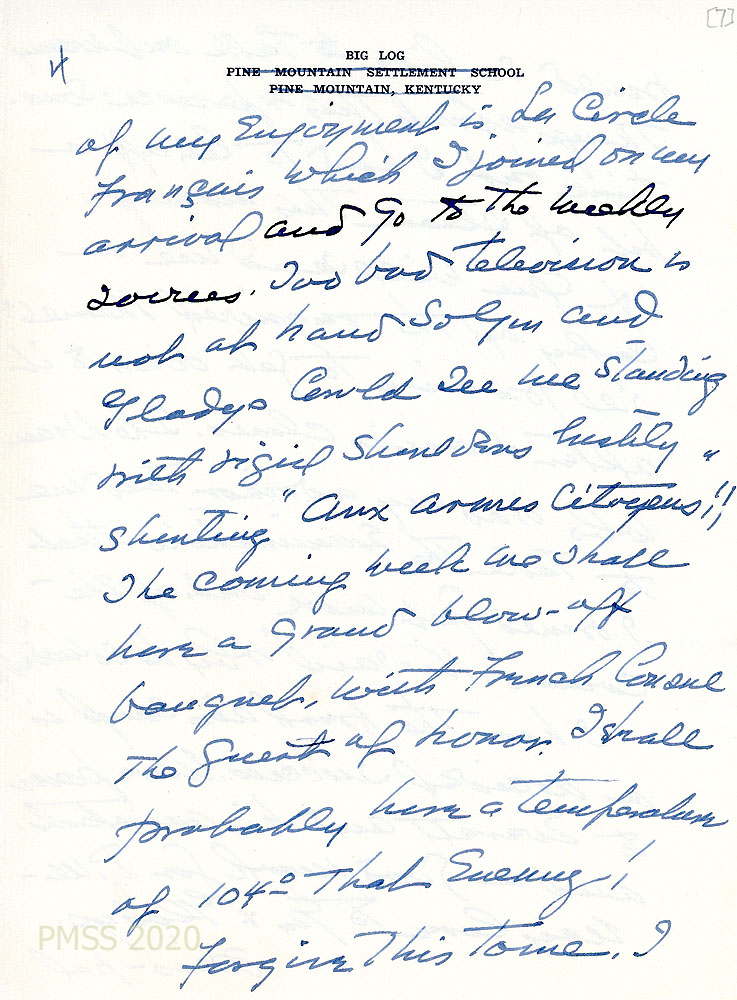 [7]
4
BIG LOG
PINE MOUNTAIN SETTLEMENT SCHOOL
PINE MOUNTAIN, KENTUCKY
of my Enjoyment is Le Circle
Français which I joined on my
arrival and go to the weekly
soirees. Too bad television is
not at hand so Glyn and
Gladys could see me standing
with rigid shoulders lustily
shouting "aux armes Citoyens!!"
The coming week we shall
have a grand blow-off
banquet, with French Consul
the guest of honor. I shall
probably have a temperature
of 104º that Evening!!
Forgive this tome. I
PMSS 2020